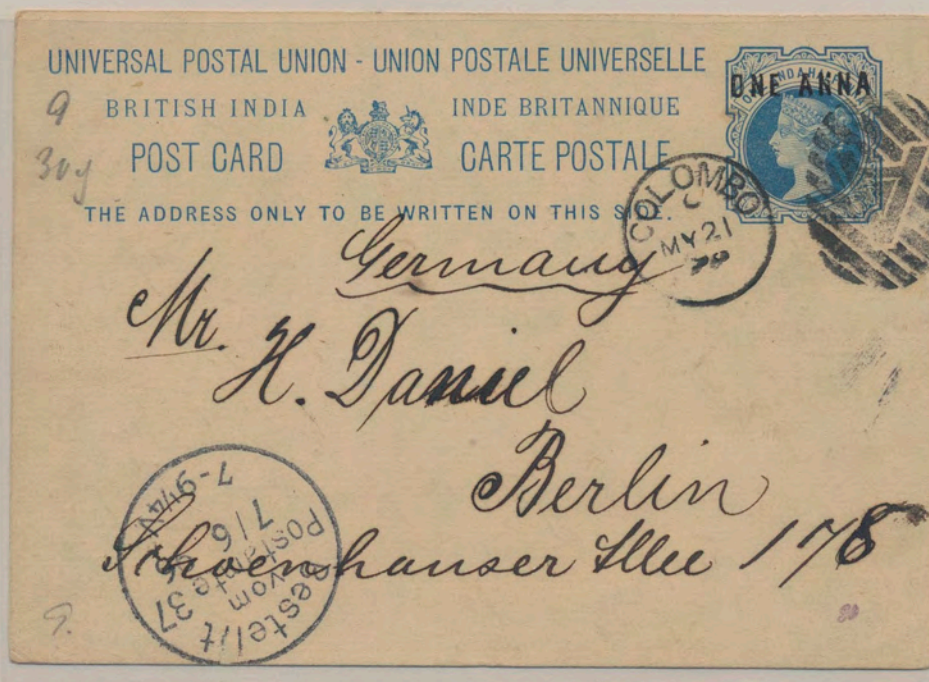 UNIVERSAL POSTAL UNION - UNION POSTALE UNIVERSELLE
BRITISH INDIA INDE BRITANNIQUE
POST CARD CARTE POSTALE
THE ADDRESS ONLY TO BE WRITTEN ON THIS SIDE.
ONE ANNA
COLOMBO
C
MY 21
79
9
Germany
Mr.
H. Daniel
Berlin
Schoenhauser Allee 178
Bestellt
vom
Postamte 37
7/6